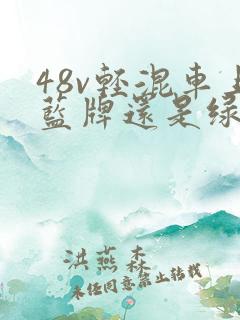 48v輕混車上
藍牌還是綠
洪燕森
未经同意禁止转载